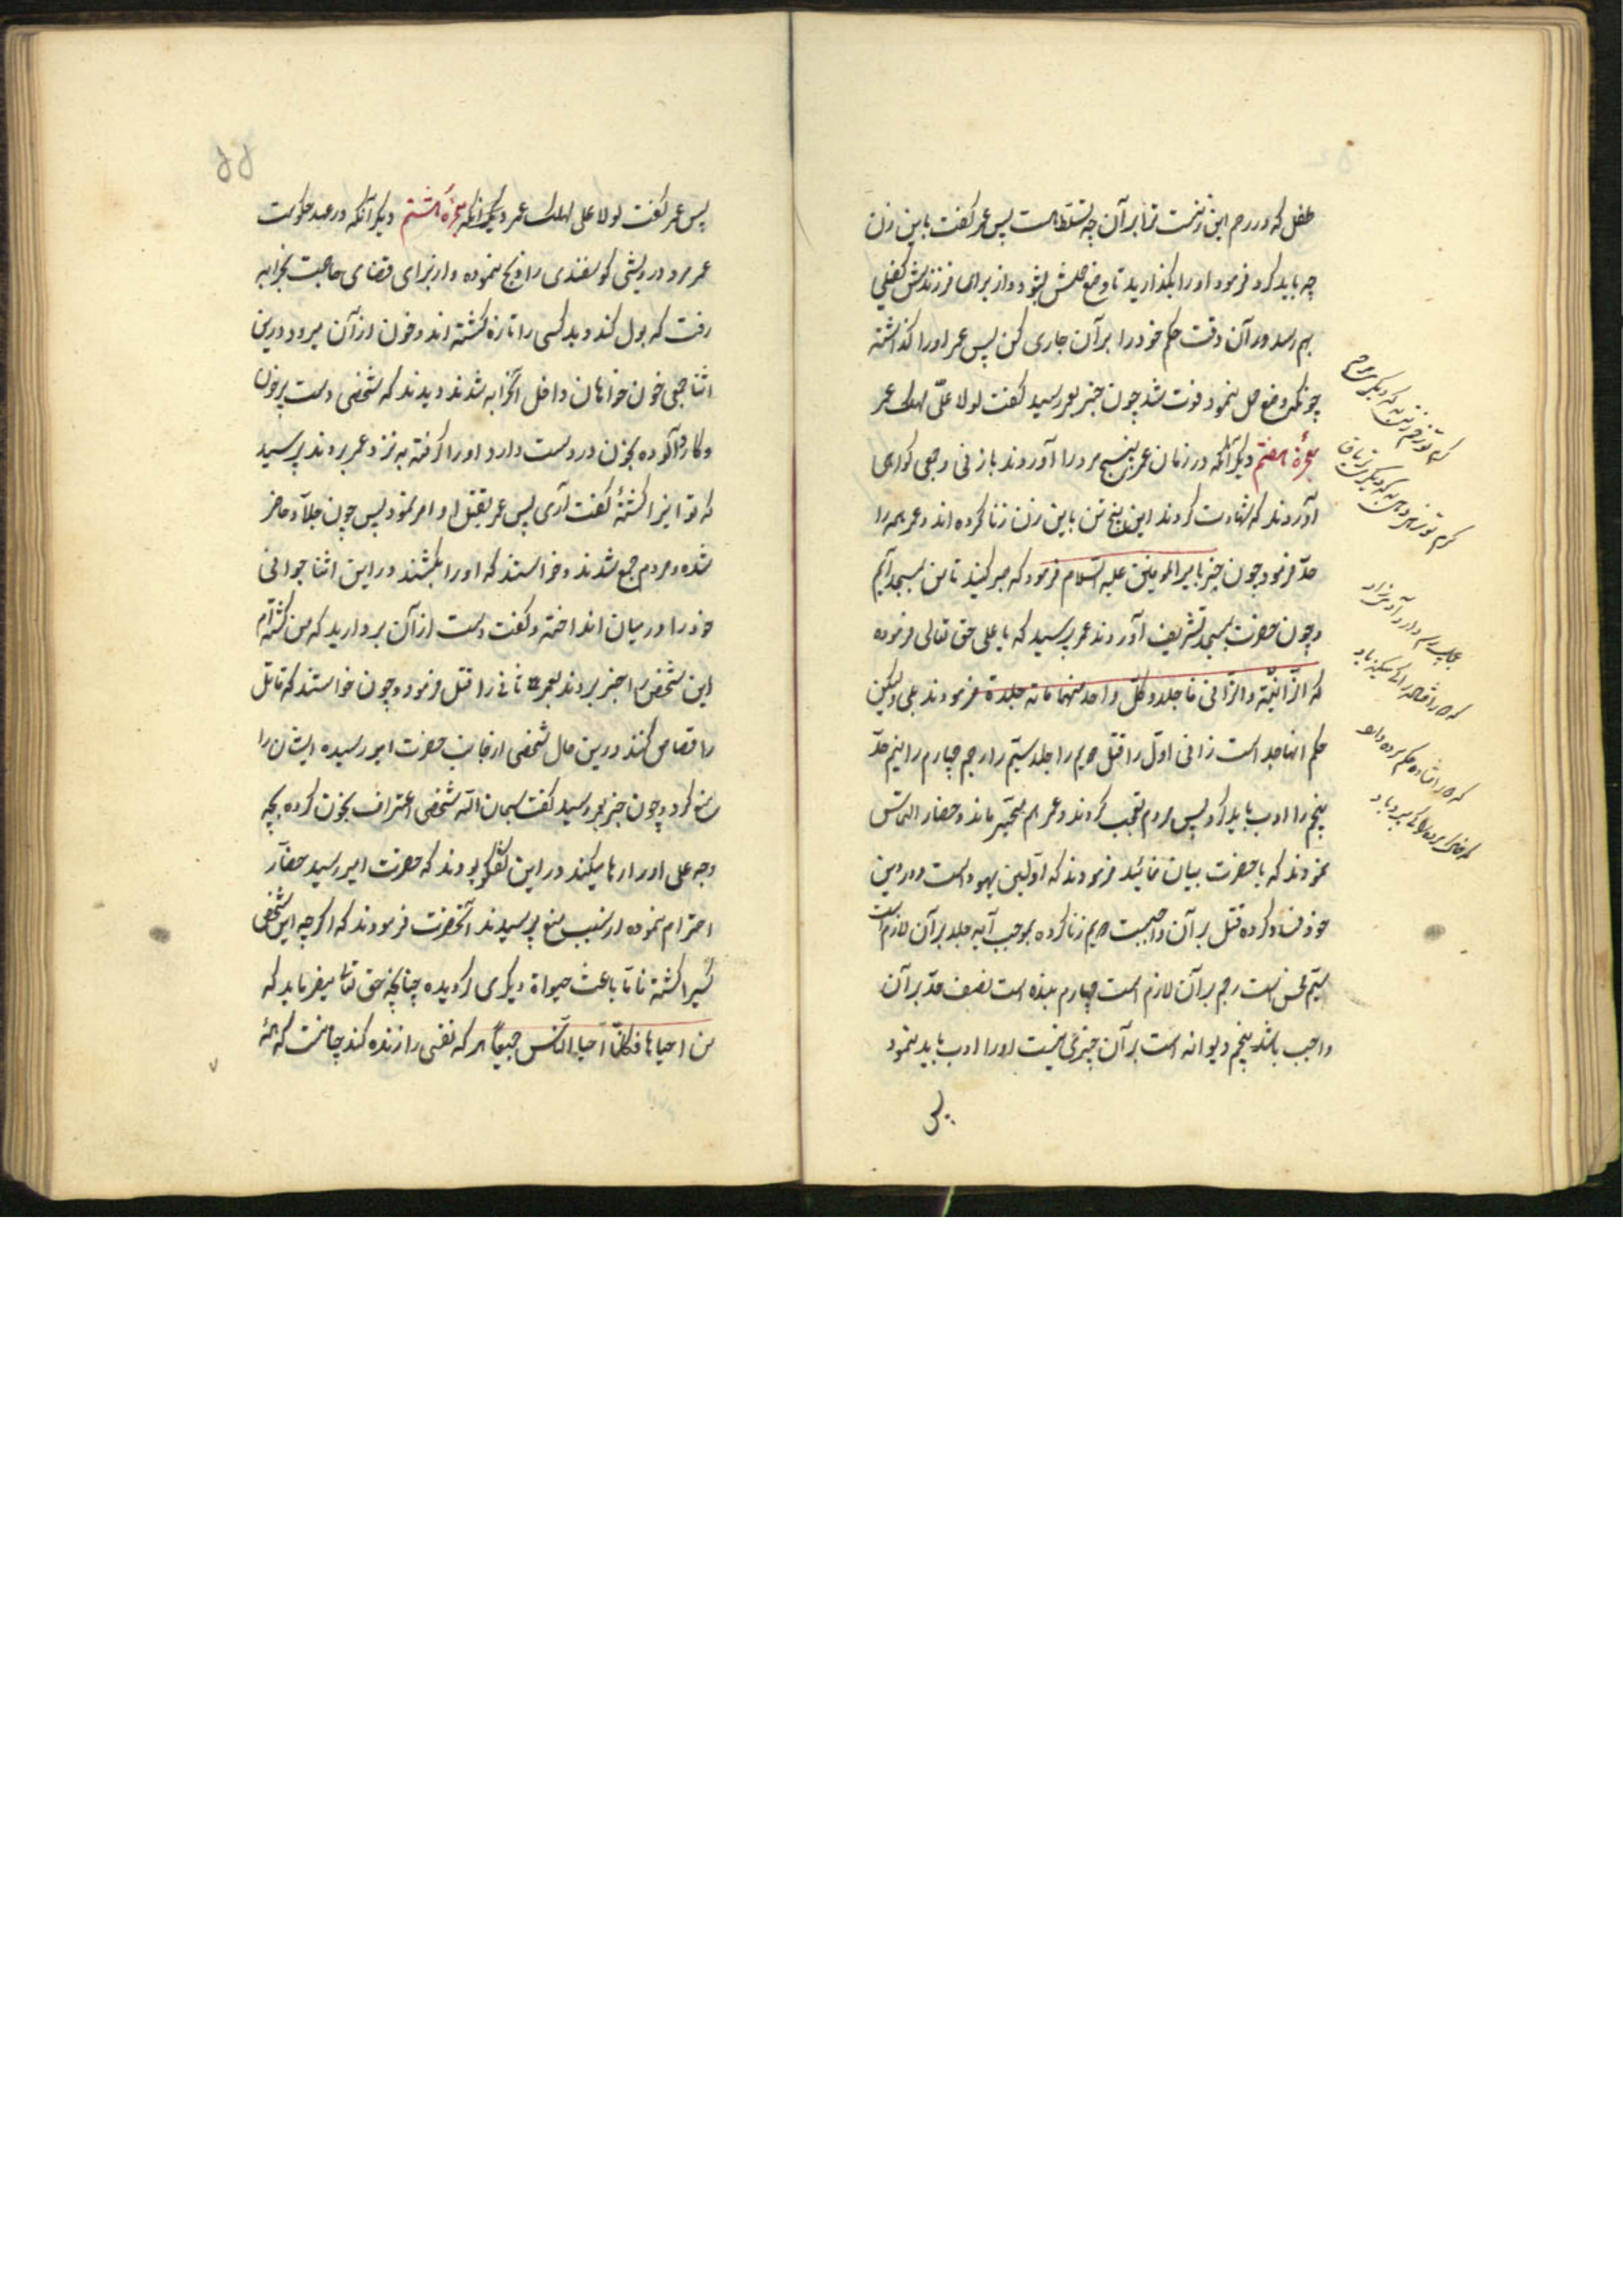 طفل که در رحم این زنست ترا بر آن چه تسلّطاست پس عمر گفت باین زن
چه باید کرد فرمود او را بگذارید تا وضع حملش بشود و از برای فرزندش کفیلی
بهم رسد در آن وقت حکم خود را بر آن جاری کن پس عمر او را گذاشته
چونکه وضع حمل نمود فوت شد چون خبر بعمر رسید گفت لولا علیّ لهلک عمر
معجزهٔ هفتم دیگر آنکه در زمان عمر پنج مرد را آوردند با زنی و جمعی گواهی
آوردند که شهادت کردند این پنج تن باین زن زنا کرده اند و عمر همه را
حدّ فرمود چون خبر بامیرالمومنین علیه السّلام فرمود که صبر کنید تا من بمسجد آیم
و چون حضرت بمسجد تشریف آوردند عمر پرسید که یا علی حق تعالی فرموده
که الزّانیة والزّانی فاجلدوا کلّ واحد منهما مائه جلدة فرمودند بلی ولیکن
حکم اینها جد است زانی اوّل را قتل دویم را جلد سیّم را رجم چهارم را نیم حدّ
پنجم را ادب باید کرد پس مردم تعجب کردند و عمر هم متحیّر ماند و حضار التماس
نمودند که یا حضرت بیان نمائید فرمودند که اوّلین یهود است و در دین
خود فساد کرده قتل بر آن واجبست دویم زنا کرده بموجب آیه جلد بر آن لازم است
سیّم محسن است رجم بر آن لازم است چهارم بنده است نصف حدّ بر آن
واجب باشد پنجم دیوانه است بر آن چیزی نیست او را ادب باید نمود
پس
۵۵
پس عمر گفت لولا علی لهلک عمر دیگر آنکه معجزهٔ هشتم دیگر آنکه در عهد حکومت
عمر مرد درویشی کوسفندی را ذبح نموده و از برای قضای حاجت بخرابه
رفت که بول کند دید کسی را تازه کشته اند و خون از آن میرود درین
اثنا جمعی خون خواهان داخل آنخرابه شدند دیدند که شخصی دست پرخون
و کارد آلوده بخون در دست دارد او را گرفته به نزد عمر بردند پرسید
که تو اینرا کشتهٔ گفت آری پس عمر بقتل او امر نمود پس چون جلّاد حاضر
شده و مردم جمع شدند و خواستند که او را بکشند در این اثنا جوانی
خود را در میان انداخته و گفت دست از آن بردارید که من کشته‌ام
این شخص را خبر بردند بعمر ثانی را قتل فرمود و چون خواستند که قاتل
را قصاص کنند درین حال شخصی از جانب حضرت امیر رسیده ایشان را
منع کرد و چون خبر بعمر رسید گفت سبحان الله شخصی اعتراف بخون کرده بچه
وجه علی او را رها میکند در این گفتگو بودند که حضرت امیر رسید حضّار
احترام نموده از سبب منع پرسیدند آنحضرت فرمودند که اگر چه این شخص
کسیرا کشته فامّا باعث حیواة دیگری گردیده چنانچه حق تعالی میفرماید که
من احیاها فکانّما احیا النّاس جمیعًا هر که نفسی را زنده کند چنانست که همهٔ